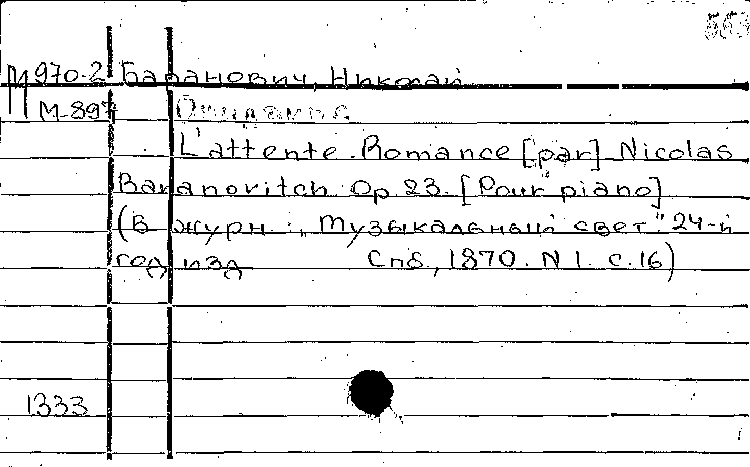 553
М 970-2 Баранович, Николай
М-897 Ожидание
L'attente. Romance [par] Nicolas
Baranovitch Op. 23. [Pour piano]
(В журн.: „Музыкальный свет." 24-й
год изд Спб, 1870. N 1. с. 16)
1333